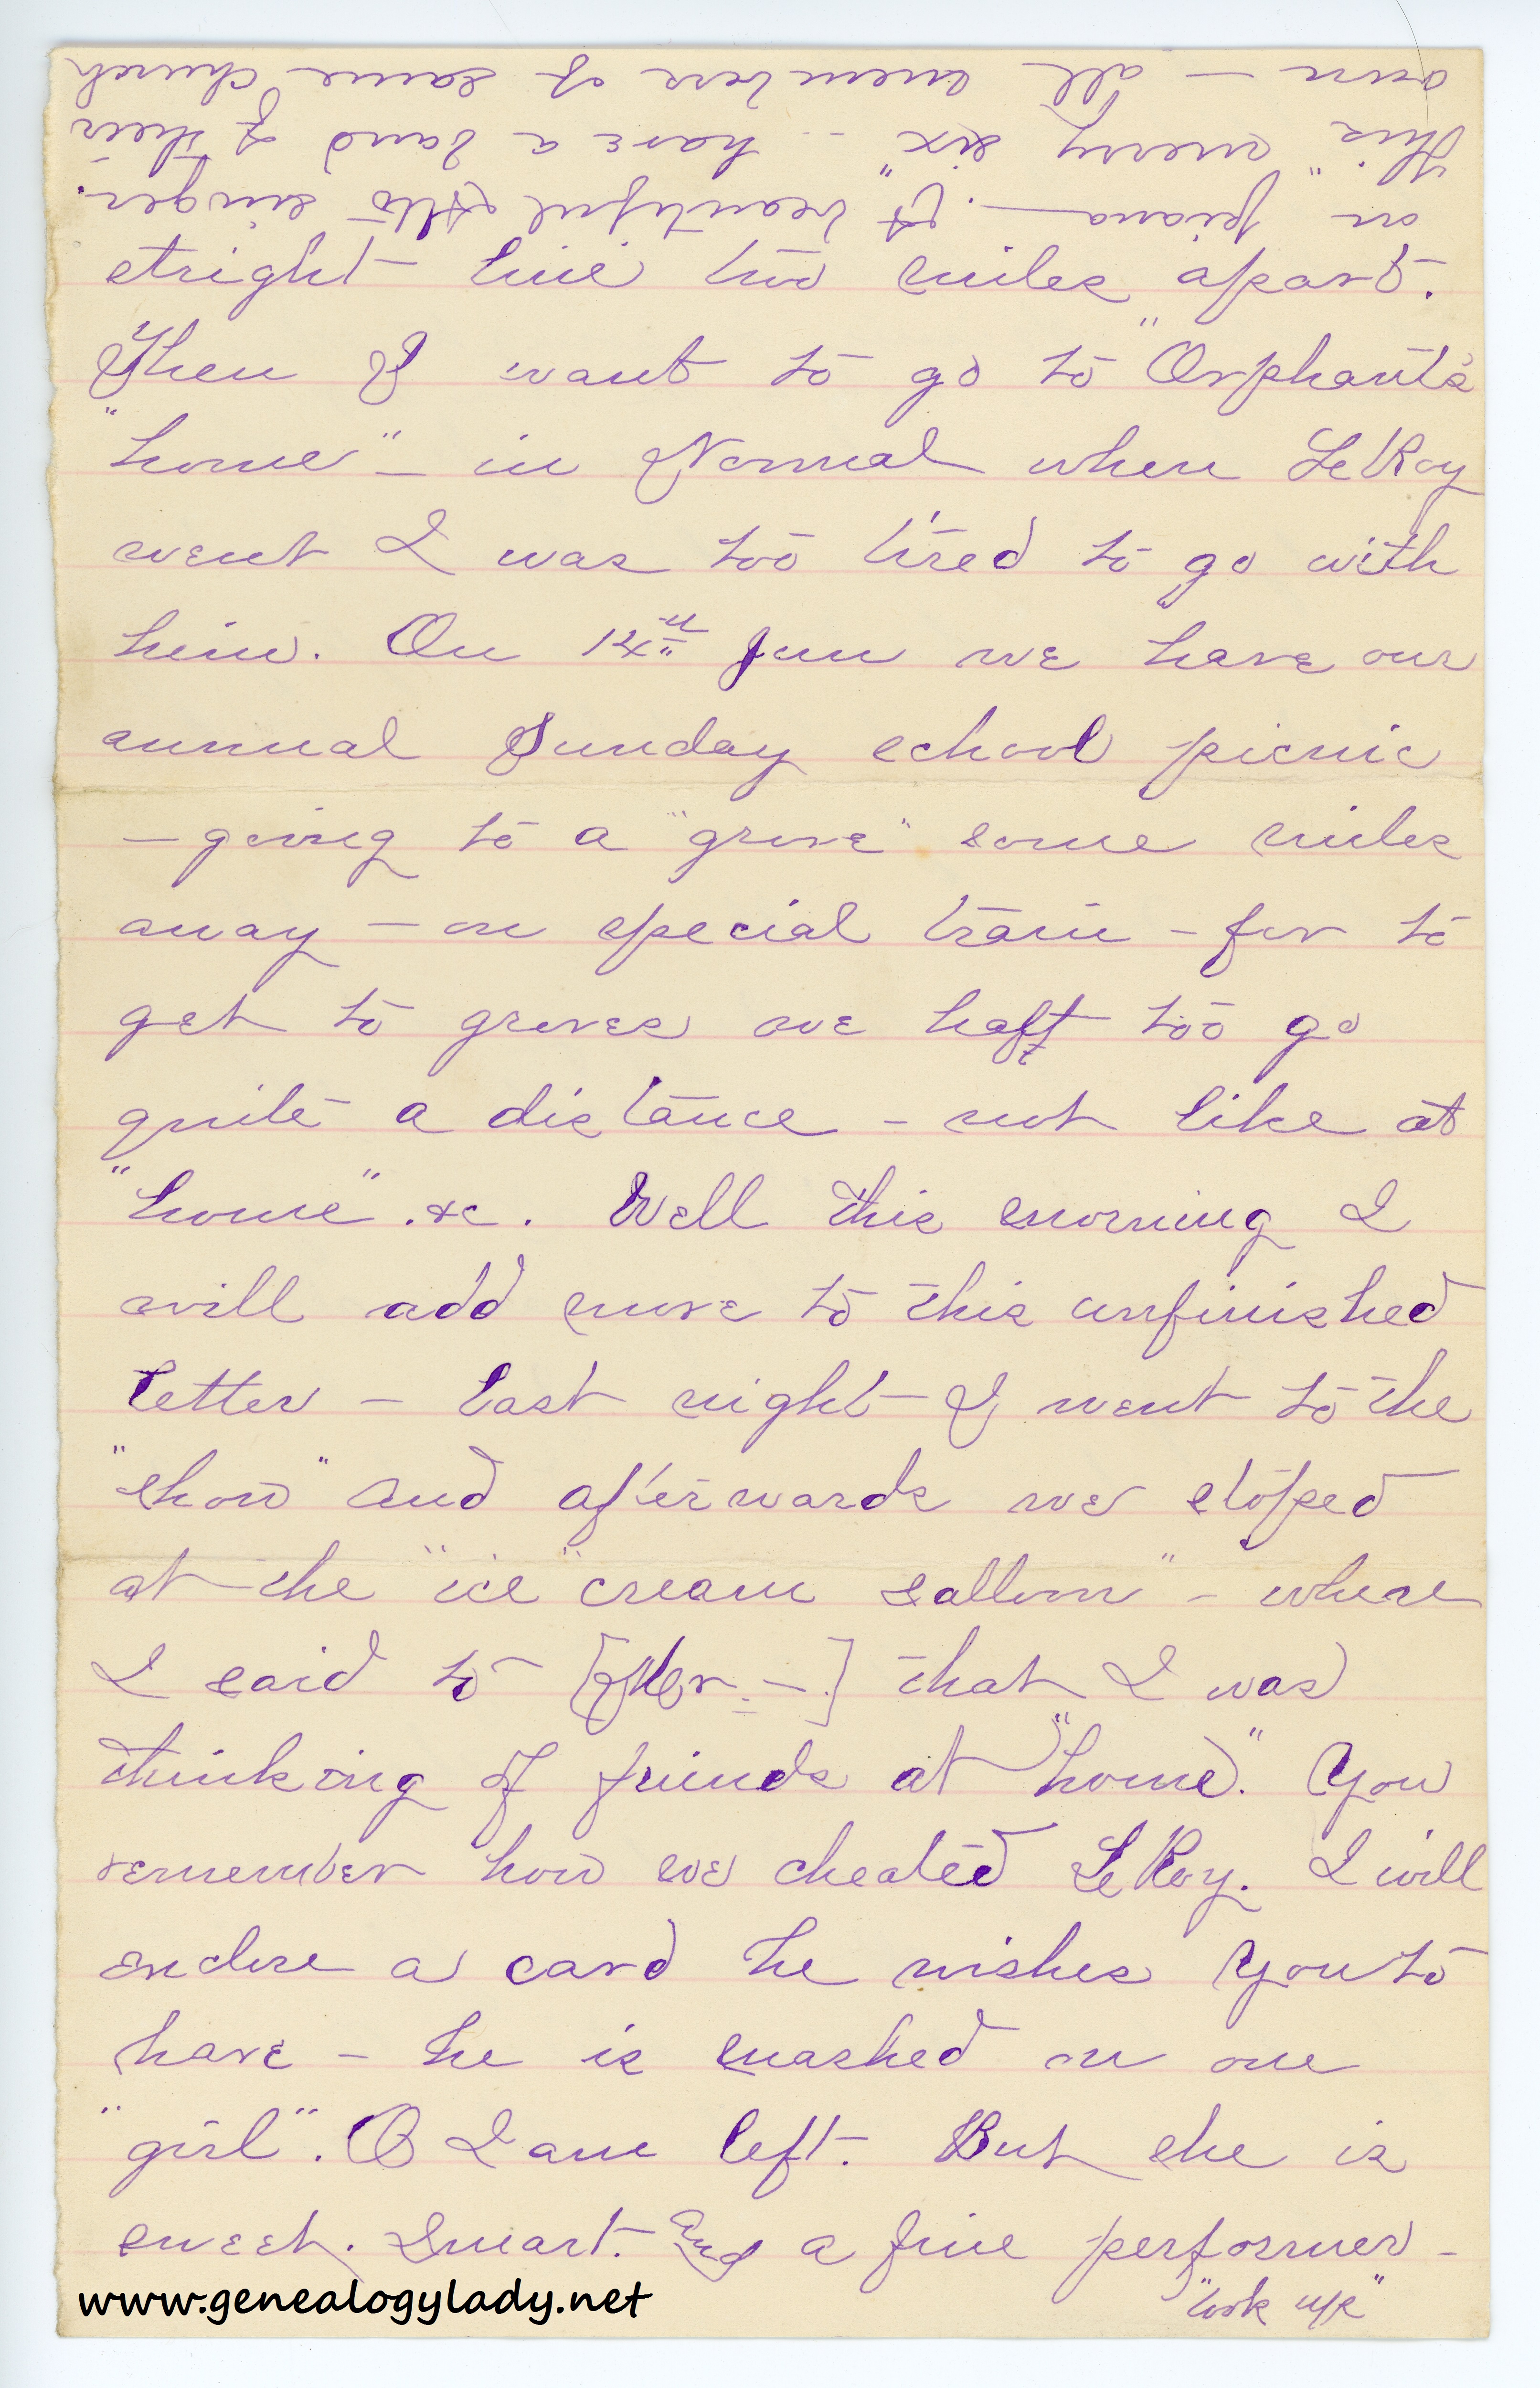 stright line two miles apart.
Then I want to go to "Orphant's
"home" – in Normal when LeRoy
went I was too tired to go with
him. On 14th Jun we have our
annual Sunday school picnic
– going to a "grove" some miles
away – on special train – for to
get to groves we haft too go
quite a distance – not like at
"home" .&c. Well this morning I
will add more to this unfinished
letter – last night I went to the
"show" and afterwards we stoped
at the "ice "cream salloon" – where
I said to [Mr. –.] that I was
thinking of friends at "home". You
remember how we cheated LeRoy. I will
enclose a card he wishes you to
have – he is mashed on one
"girl". O I am left. But she is
sweet. Smart. And a fine performer –
"look up"
on piano –. A beautiful Alto singer.
this "merry six" – have a band of their
own – all members of same church
www.genealogylady.net